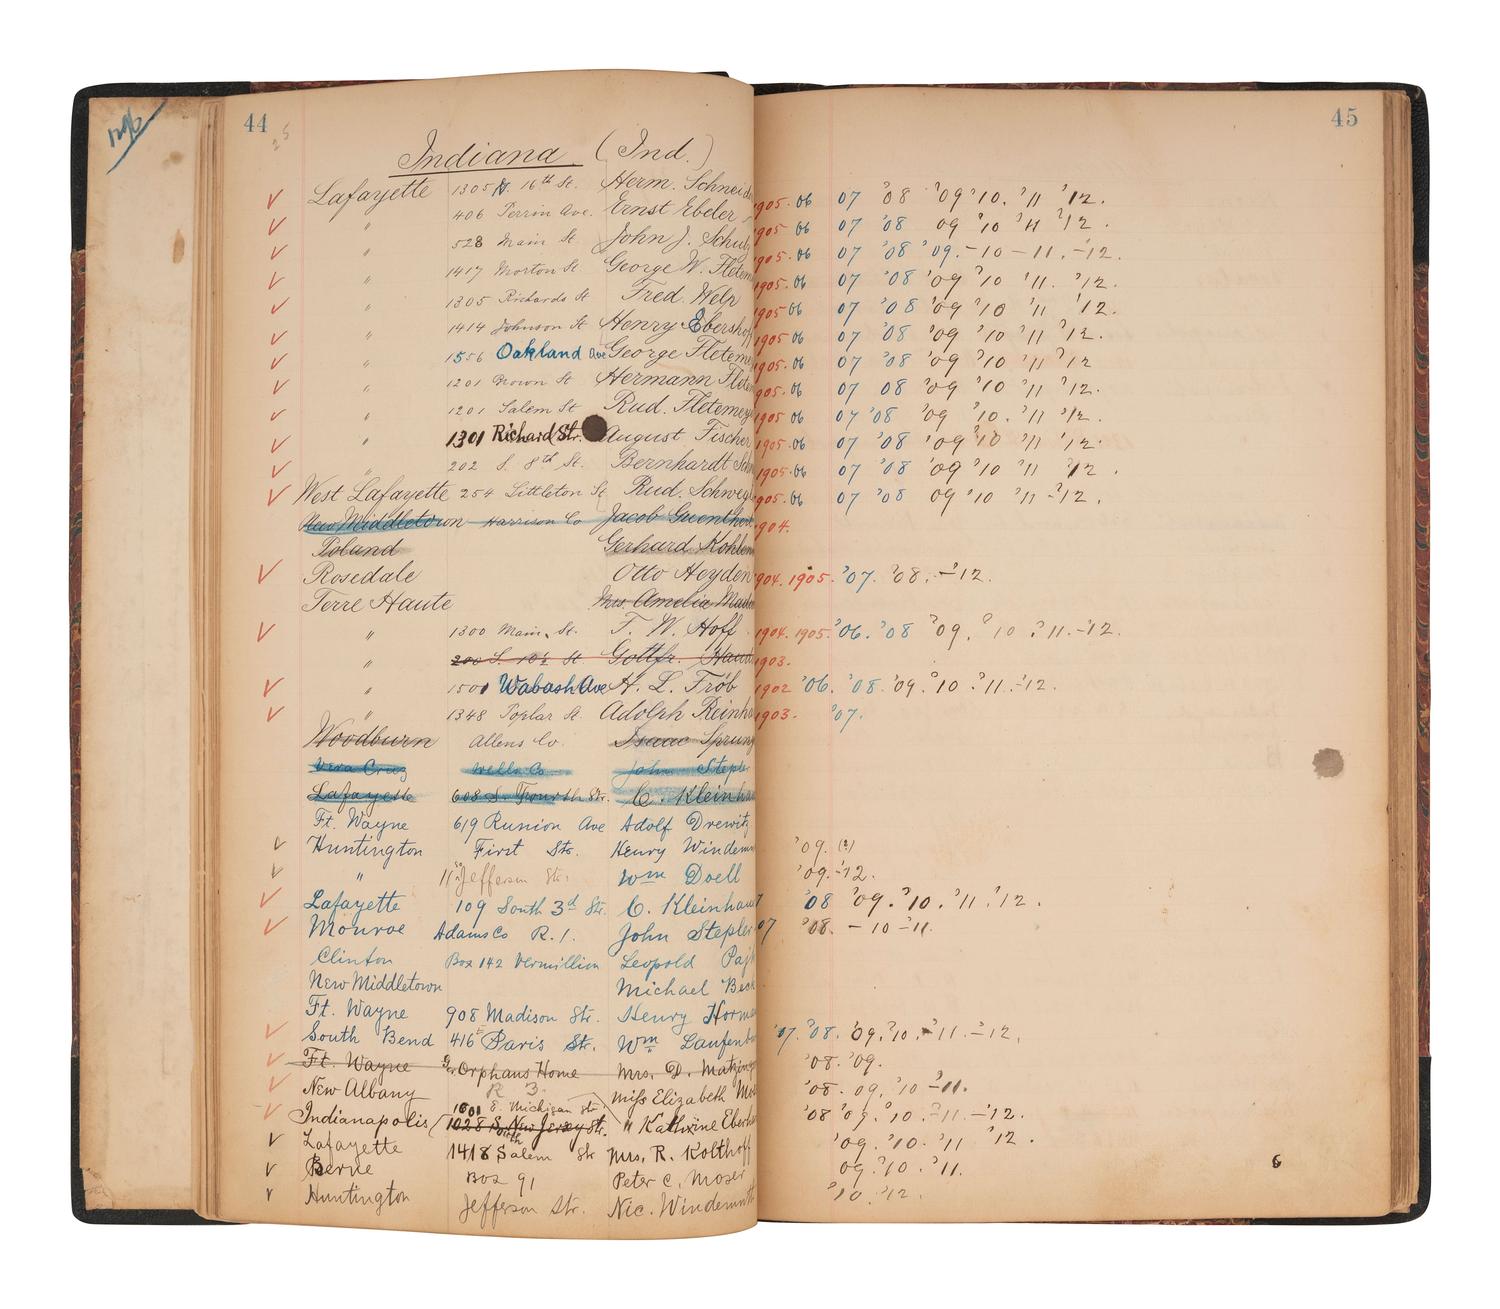 44
45
Indiana (Ind.)
Lafayette 1305 N. 16th St. Herm. Schneid 1905. 06 07 '08 '09 '10. '11 '12.
" 406 Perrin Ave. Ernst Ebeler 1905 06 07 '08 09 '10 '11 '12.
" 528 Main St. John J. Schul 1905. 06 07 '08 '09. - 10 - 11. - '12.
" 1417 Morton St. George W. Fletem 1905. 06 07 '08 '09 '10 '11. '12.
" 1305 Richards St Fred. Welp 1905 06 07 '08 '09 '10 '11 '12.
" 1414 Johnson St Henry Ebershoff 1905. 06 07 '08 '09 '10 '11 '12.
" 1556 Oakland Ave George Fleteme 1905. 06 07 '08 '09 '10 '11 '12
" 1201 Brown St Hermann Flete 1905. 06 07 08 '09 '10 '11 '12.
" 1201 Salem St Rud. Fletemey 1905 06 07 '08 '09 '10. '11 '12.
" 1301 Richard Str. August Fischer 1905. 06 07 '08 '09 '10 '11 '12.
" 202 S. 8th St. Bernhardt Sch 1905. 06 07 '08 '09 '10 '11 12.
West Lafayette 254 Littleton St Rud. Schweg 1905. 06 07 '08 09 '10 '11 - '12.
New Middletown Harrison Co Jacob Guenther 1904.
Poland Gerhard Kohlen
Rosedale Otto Heyden 1904. 1905. '07. '08. - '12.
Terre Haute Mrs. Amelia
" 1300 Main St. F. W. Hoff 1904. 1905. '06. '08 '09. '10 '11. - '12.
" 200 S. 10½ St. Gottfr. 1903.
" 1501 Wabash Ave H. L. Fröb 1902 '06. '08. '09. '10. '11. - '12.
" 1348 Poplar St. Adolph Reinh 1903. '07.
Woodburn Allens Co. Isaac Sprung
Vera Cruz Wells Co John Stepler
Lafayette 608 S. Fourth Str. C. Kleinha
Ft. Wayne 619 Runion Ave Adolf Drewitz
Huntington First Str. Henry Windem '09. (?)
" Jefferson Str. Wm Doell '09. - '12.
Lafayette 109 South 3d Str. C. Kleinhau 7 '08 '09. '10. '11. '12.
Monroe Adams Co R. 1. John Stepler 07 '08. - 10 - 11.
Clinton Box 142 Vermillion Leopold Paj
New Middletown Michael Beck
Ft. Wayne 908 Madison Str. Henry Horm
South Bend 416 E Paris Str. Wm Laufenb '07. '08. '09. '10. - '11. - '12.
Ft. Wayne Ger. Orphans Home Mrs. D. Matzing '08. '09.
New Albany R 3. Miss Elizabeth Mo '08. 09. '10 - 11.
1601 E. Michigan Str
Indianapolis 1028 S. New Jersey Str. " Kathrine Eberh '08 '09. '10. - '11. - '12.
Lafayette 1418 South Salem Str Mrs. R. Kolthoff '09. '10. '11 '12.
Berne Box 91 Peter C. Moser 09. '10. '11.
Huntington Jefferson Str. Nic. Windemuth '10. '12.
6